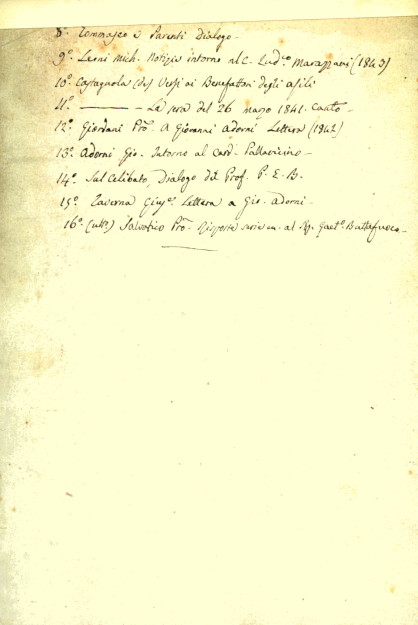 8º. Tommaseo e Parenti Dialogo -
9º. Leoni Mich. Notizie intorno al C. Lud.co Marazzani (1843)
10º. Castagnola (de) Versi ai Benefattori degli asili
11º. ——— - La sera del 26 marzo 1841. Canto -
12º. Giordani Pro. A Giovanni Adorni Lettera (1842)
13º. Adorni Gio. Intorno al Card. Pallavicino -
14º. Sul Celibato, Dialogo del Prof. P. E. B.
15º. Taverna Gius.e Lettera a Gio. Adorni -
16º. (ult.º) Salvotico Pro. Risposte al Sg. Gaet.º Buttafuoco -